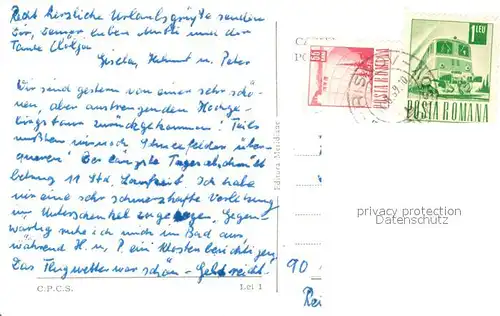 Recht herzliche Urlaubsgrüße senden
Dir, lieben Mutti und der
Tante
Gisela, Helmut u. Peter
Wir sind gestern von einer sehr schö-
nen, aber anstrengenden Hochge-
birgstour zurückgekommen! Teils
mußten wir noch Schneefelder über-
queren! Der längste Tagesabschnitt
betrug 11 Std. Laufzeit. Ich habe
mir eine sehr schmerzhafte Verletzung
im Unterschenkel zugezogen. Gegen-
wärtig ruhe ich mich im Bad aus,
während H. u. P. ein Kloster besichtigen.
Das Flugwetter war schön - Geld reicht
C.P.C.S.
Lei 1
Editura Meridiane
POSTA ROMANA
1 LEU
POSTA ROMANA
privacy protection
Datenschutz
90